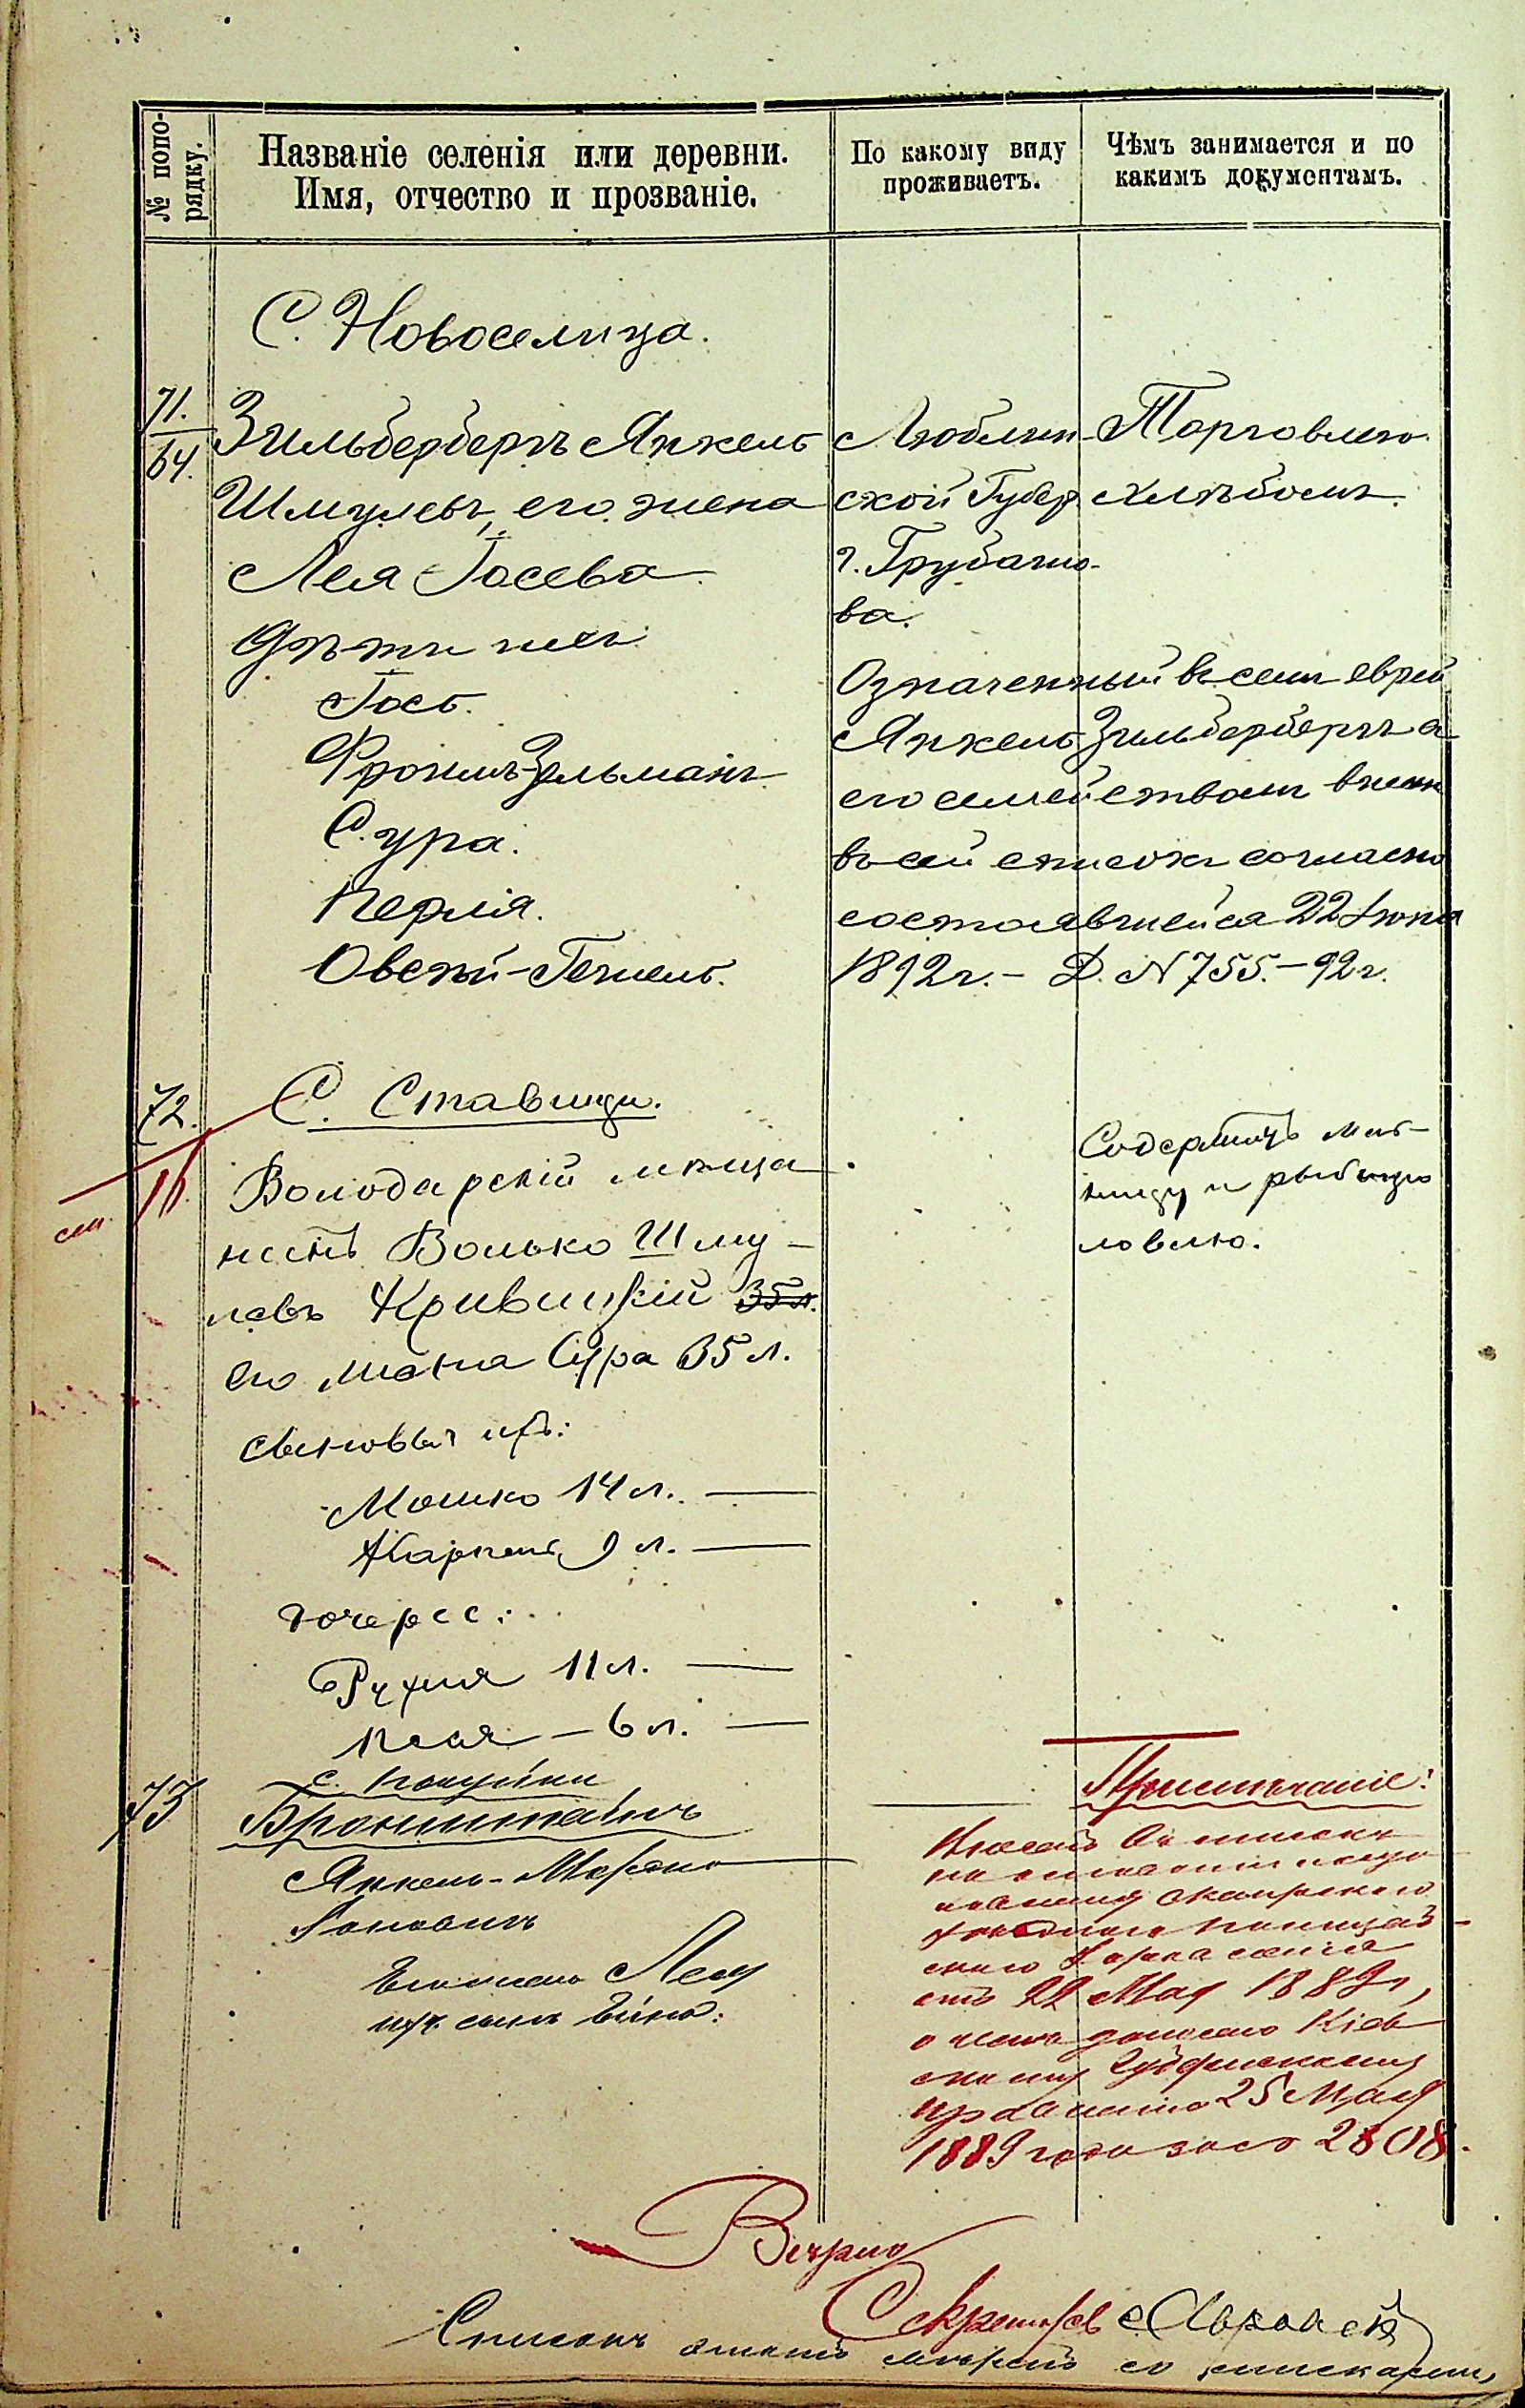 № попо-
рядку.
Названіе селенія или деревни.
Имя, отчество и прозваніе.
По какому виду
проживаетъ.
Чѣмъ занимается и по
какимъ документамъ.
С. Новоселица.
71.
64.
Зильбербергъ Янкель
Шмулевъ, его жена
Лея Іосева.
Дѣти ихъ:
Іось.
Фроимъ-Зельманъ
Сура.
Перля.
Овсей-Гешель.
Люблин-
ской Губер.
г. Грубешо-
ва.
Торговлею
хлѣбомъ.
Означенный въ семъ еврей
Янкель Зильбербергъ а
его семействомъ внесен
въ сей списокъ согласно
состоявшейся 22 Іюня
1892 г. - Д. № 755. - 92 г.
72.
см. 16.
С. Ставищи.
Володарскій мѣща-
нинъ Волько Шму-
левъ Кривицкій 35 л.
его жена Сура 35 л.
сыновья ихъ:
Мошко 14 л.
9 л.
дочери:
Рухля 11 л.
Песя - 6 л.
Содержитъ мель-
ницу и рыбную
ловлю.
73
с.
Бронштейнъ
Янкель-
жена Лея
сынъ
Примѣчаніе:
на основаніи
Сквирскаго
Уѣзднаго Полицей-
скаго Управленія
отъ 22 Мая 1889 г.,
о чемъ донесено Кіев-
скому Губернскому
Правленію 25 Мая
1889 года за № 2808.
Вѣрно
Секретарь
Списокъ